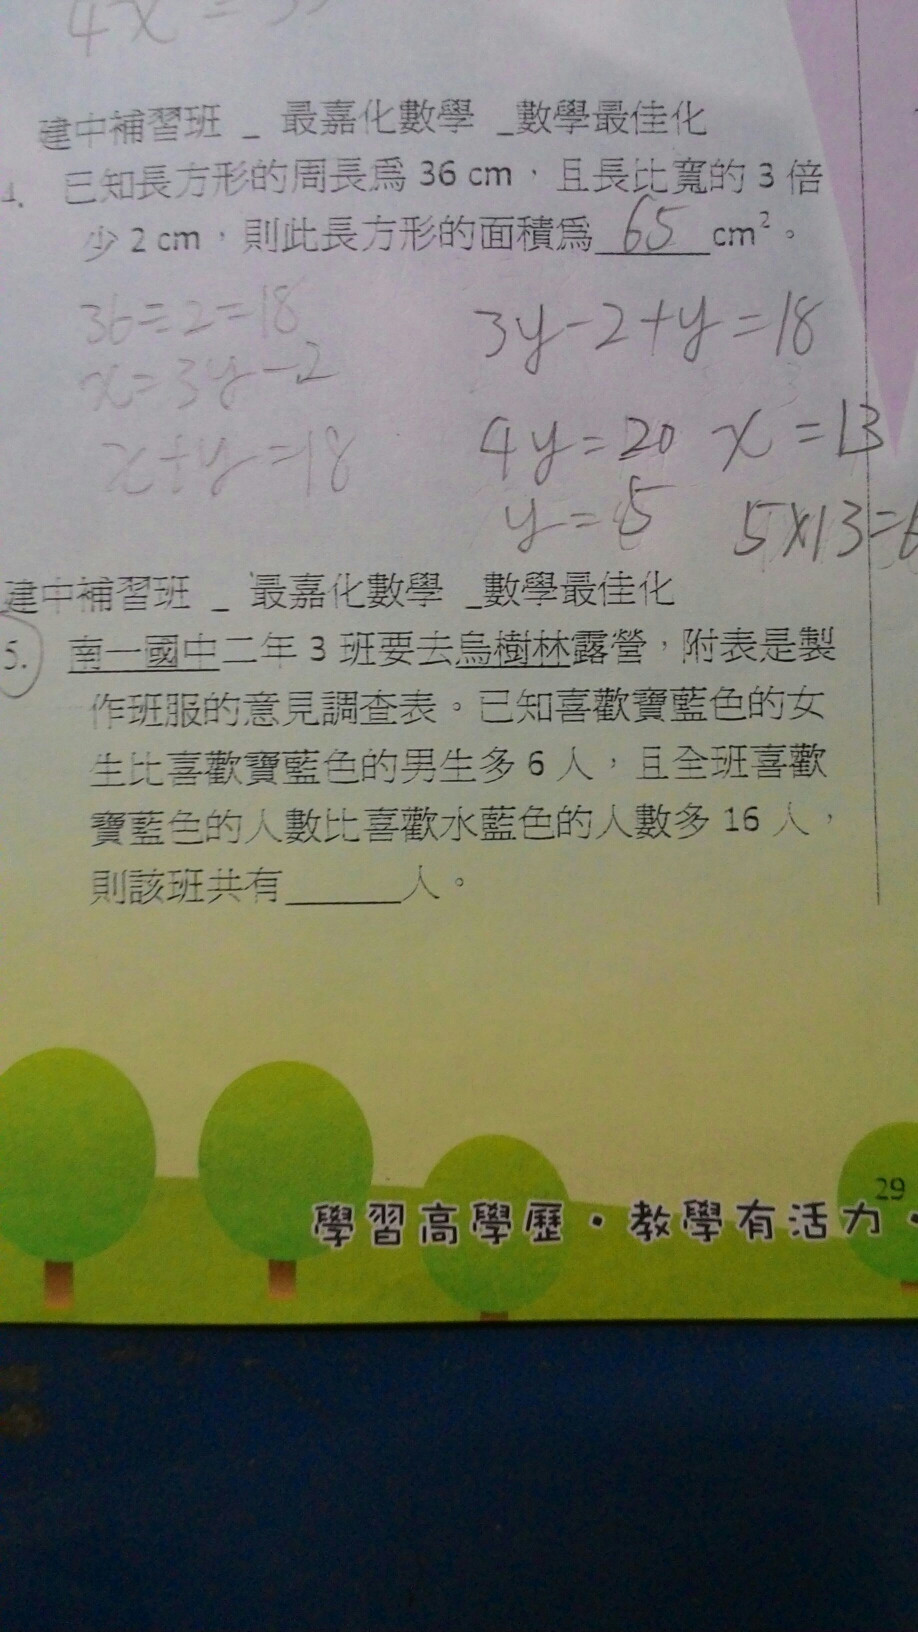 4x = 
建中補習班 _ 最嘉化數學 _數學最佳化
4. 已知長方形的周長爲 36 cm，且長比寬的 3 倍
少 2 cm，則此長方形的面積爲 65 cm²。
36÷2=18
x=3y-2
x+y=18
3y-2+y=18
4y=20 x=13
y=5 5×13=6
建中補習班 _ 最嘉化數學 _數學最佳化
5. 南一國中二年 3 班要去烏樹林露營，附表是製
作班服的意見調查表。已知喜歡寶藍色的女
生比喜歡寶藍色的男生多 6 人，且全班喜歡
寶藍色的人數比喜歡水藍色的人數多 16 人，
則該班共有______人。
29
學習高學歷・教學有活力・